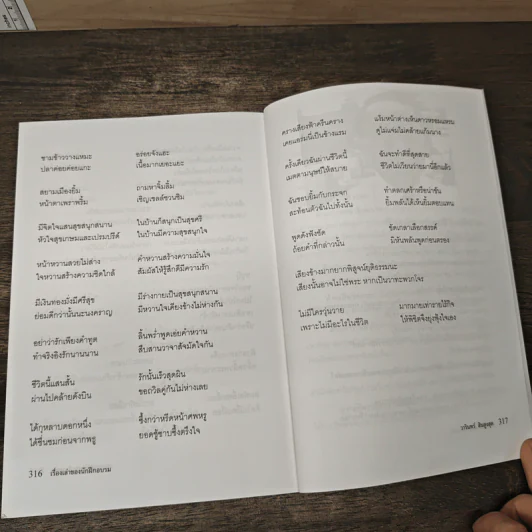 ชามข้าววางแหมะ อร่อยจังแฮะ
ปลาค่อยค่อยแกะ เนื้อมากเยอะแยะ
สยามเมืองยิ้ม ถามหาจิ้มลิ้ม
หน้าตาเพราพริ้ม เชิญเชลล์ชวนชิม
มีจิตใจแสนสุขสนุกสนาน ในบ้านก็สนุกเป็นสุขศรี
หัวใจสุขเกษมและเปรมปรีดิ์ ในบ้านมีความสุขสนุกใจ
หน้าหวานสวยไม่สร่าง คำหวานสร้างความมั่นใจ
ใจหวานสร้างความชิดใกล้ สัมผัสให้รู้สึกดีมีความรัก
มีเงินทองมั่งมีศรีสุข มีร่างกายเป็นสุขสนาน
ย่อมดีกว่านั่นนะนงคราญ มีหวานใจเคียงข้างไม่ห่างกัน
อย่าว่ารักเพียงคำพูด ลิ้นพร่ำพูดเอ่ยคำหวาน
ทำจริงอิงรักนานนาน สืบสานวาจาสัจมัดใจกัน
ชีวิตนี้แสนสั้น รักนั้นเร็วสุดผิน
ผ่านไปคล้ายดังบิน ขอถวิลคู่กันไม่ห่างเลย
ได้กุหลาบดอกหนึ่ง ซึ้งกว่าหรีดหน้าศพหรู
ได้ชื่นชมก่อนจากพรู ยอดชู้ซาบซึ้งตรึงใจ
316 เรื่องเล่าของนักฝึกอบรม
ครางเสียงฟ้าครืนคราง
เดือนแรมนี่เป็นข้างแรม
ครั้งเดียวฉันผ่านชีวิตนี้ ฉันจะทำดีที่สุดสาย
เมตตามนุษย์ให้สบาย ชีวิตไม่เวียนว่ายมานี้อีกแล้ว
ฉันชอบยิ้มกับกระจก ทำตลกเต้าหรือน่าขัน
สะท้อนตัวฉันไปทั้งนั้น ยิ้มพลันได้เห็นยิ้มตอบแทน
พูดดังฟังชัด
ถ้อยคำที่กล่าวนั้น มีหันพลันพูดก่อนตรอง
เสียงข้างมากยากพิสูจน์ยุติธรรมนะ
เสียงนั้นอาจไม่ใช่พระ หากเป็นวาทะพวกโจร
ไม่มีใครวุ่นวาย
เพราะไม่มีอะไรในชีวิต ให้พิชิตจึงยุ่งฟุ้งใจเอง
317